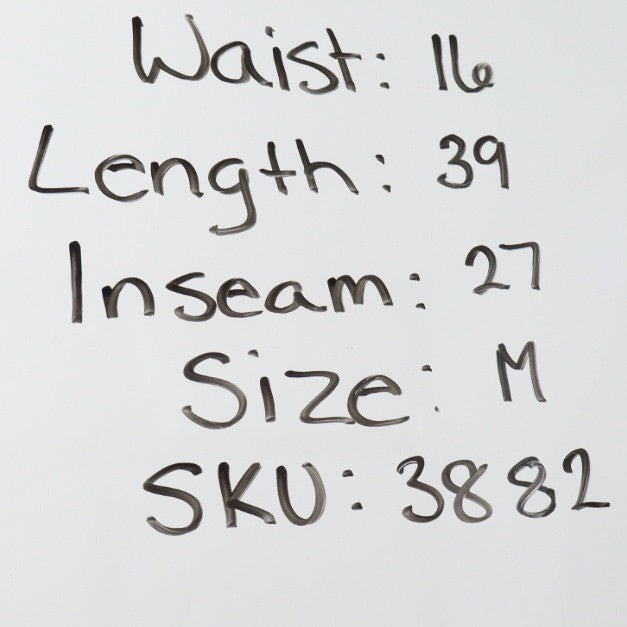 Waist: 16
Length: 39
Inseam: 27
Size: M
SKU: 3882